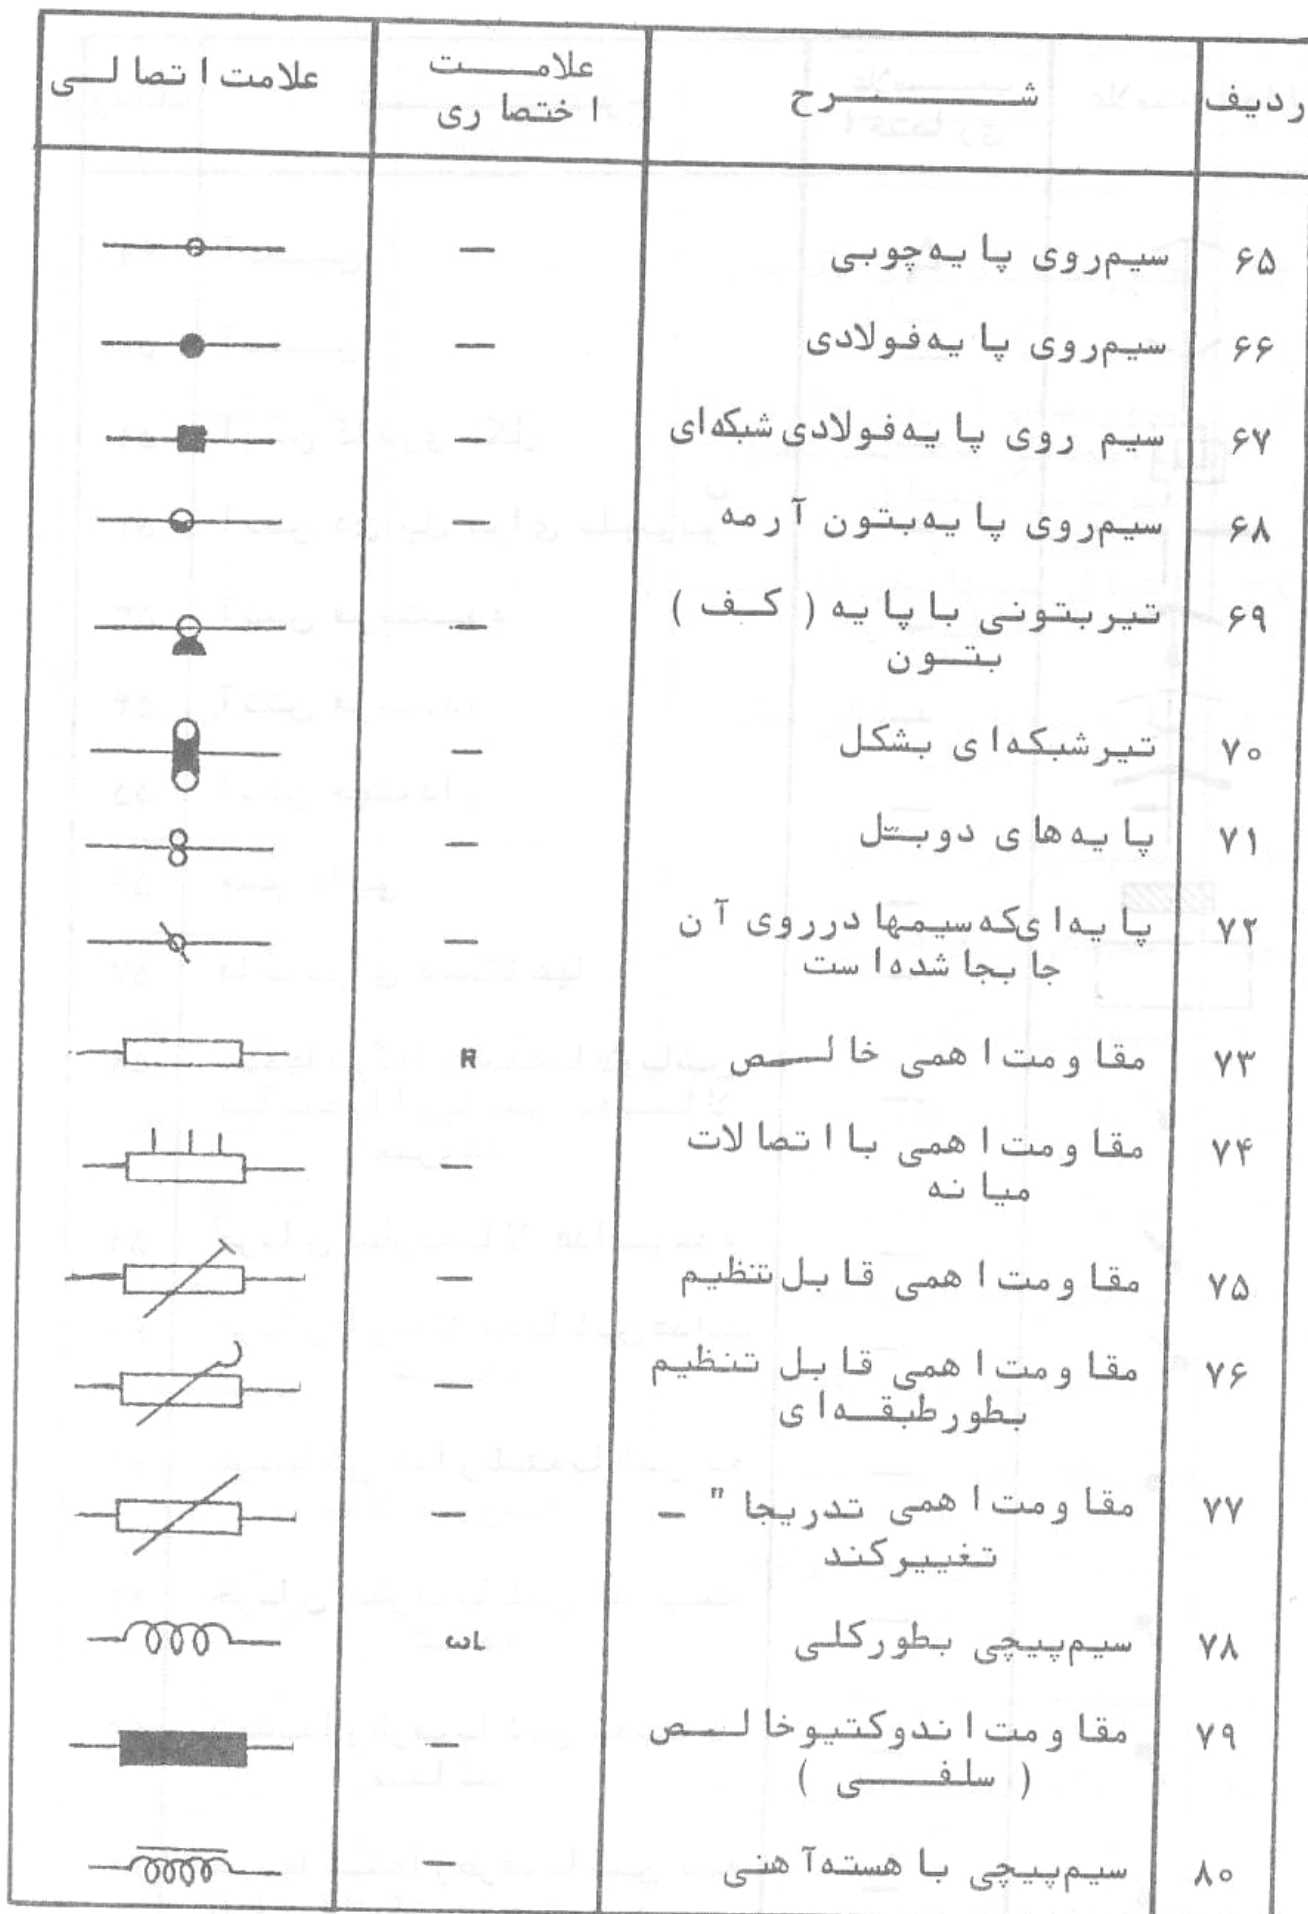 ردیف شرح علامت اختصاری علامت اتصالی
۶۵ سیم‌روی پایه‌چوبی —
۶۶ سیم‌روی پایه‌فولادی —
۶۷ سیم روی پایه‌فولادی شبکه‌ای —
۶۸ سیم‌روی پایه‌بتون آرمه —
۶۹ تیربتونی با پایه ( کف ) —
بتون
۷۰ تیرشبکه‌ای بشکل —
۷۱ پایه‌های دوبل —
۷۲ پایه‌ای‌که‌سیمها درروی آن —
جابجا شده‌است
۷۳ مقاومت اهمی خالص R
۷۴ مقاومت اهمی با اتصالات —
میانه
۷۵ مقاومت اهمی قابل تنظیم —
۷۶ مقاومت اهمی قابل تنظیم —
بطورطبقه‌ای
۷۷ مقاومت اهمی تدریجا " – —
تغییرکند
۷۸ سیم‌پیچی بطورکلی ωL
۷۹ مقاومت اندوکتیوخالص —
( سلفی )
۸۰ سیم‌پیچی با هسته‌آهنی —